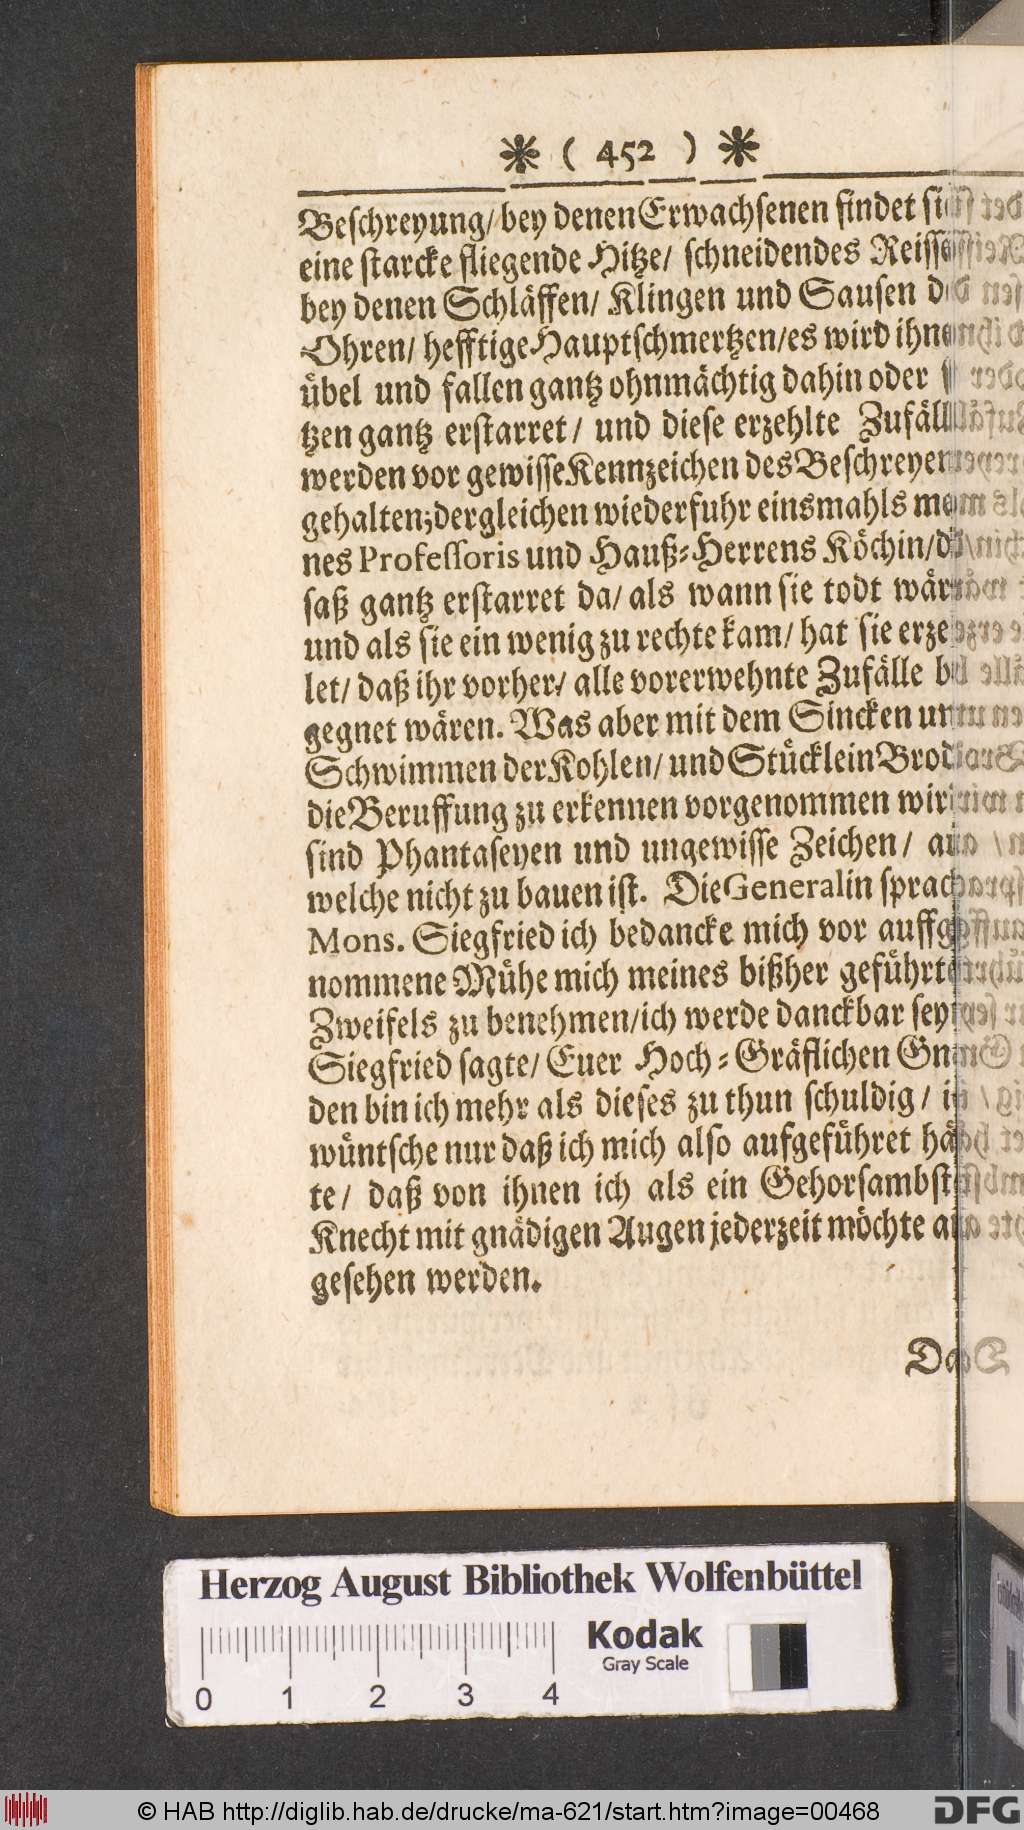 ❋ ( 452 ) ❋
Beschreyung/ bey denen Erwachsenen findet sich
eine starcke fliegende Hitze/ schneidendes Reissen
bey denen Schläffen/ Klingen und Sausen
Ohren/ hefftige Hauptschmertzen/ es wird ihnen
übel und fallen gantz ohnmächtig dahin oder
tzen gantz erstarret/ und diese erzehlte Zufälle
werden vor gewisse Kennzeichen des Beschreyens
gehalten; dergleichen wiederfuhr einsmahls mei-
nes Professoris und Hauß-Herrens Köchin/ die
saß gantz erstarret da/ als wann sie todt wäre
und als sie ein wenig zu rechte kam/ hat sie erzeh-
let/ daß ihr vorher/ alle vorerwehnte Zufälle be-
gegnet wären. Was aber mit dem Sincken und
Schwimmen der Kohlen/ und Stücklein Brod
die Beruffung zu erkennen vorgenommen wird
sind Phantaseyen und ungewisse Zeichen/ auf
welche nicht zu bauen ist. Die Generalin sprach
Mons. Siegfried ich bedancke mich vor auffge-
nommene Mühe mich meines bißher geführten
Zweifels zu benehmen/ ich werde danckbar seyn
Siegfried sagte/ Euer Hoch-Gräflichen Gna-
den bin ich mehr als dieses zu thun schuldig/ ich
wüntsche nur daß ich mich also aufgeführet hät-
te/ daß von ihnen ich als ein Gehorsambster
Knecht mit gnädigen Augen jederzeit möchte an-
gesehen werden.
Das
Herzog August Bibliothek Wolfenbüttel
Kodak
Gray Scale
0 1 2 3 4
© HAB http://diglib.hab.de/drucke/ma-621/start.htm?image=00468
DFG